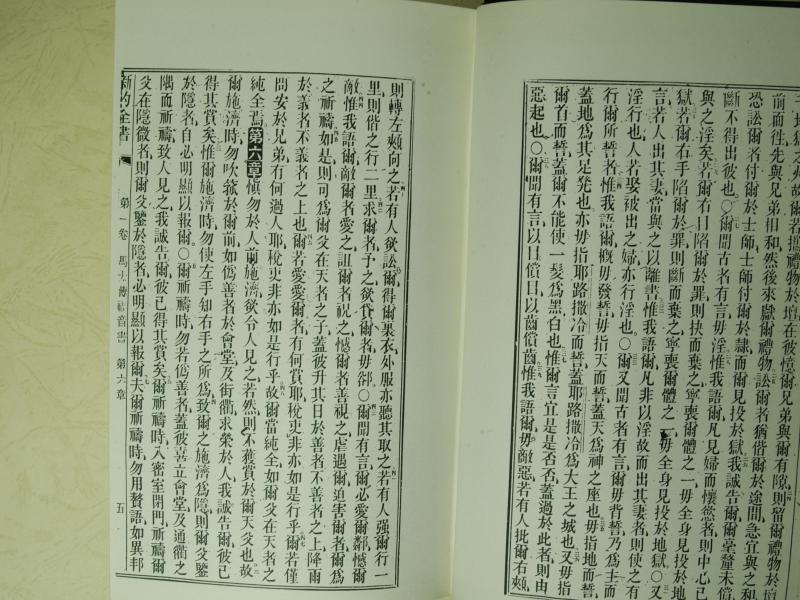 前而往先與兄弟相和然後來獻爾禮物訟爾者猶偕爾於途間急宜與之和
恐訟爾者付爾於士師士師付爾於隸而爾見投於獄我誠告爾毫釐未償
斷不得出彼也〇爾聞古者有言毋淫惟我語爾凡見婦而懷慾者則中心已
與之淫矣若爾右目陷爾於罪則抉而棄之寧喪爾體之一毋全身見投於地
獄若爾右手陷爾於罪則斷而棄之寧喪爾體之一毋全身見投於地獄〇又
言若人出其妻當與之以離書惟我語爾凡非以淫故而出其妻者則使之有
淫行也人若娶被出之婦亦行淫也〇爾又聞古者有言爾毋背誓乃爲主而
行爾所誓者惟我語爾概毋發誓毋指天而誓蓋天爲神之座也毋指地而誓
蓋地爲其足凳也亦毋指耶路撒冷而誓蓋耶路撒冷爲大王之城也又毋指
爾首而誓蓋爾不能使一髮爲黑白也惟爾言宜是是否否蓋過於此者則由
惡起也〇爾聞有言以目償目以齒償齒惟我語爾毋敵惡若有人批爾右頰
則轉左頰向之若有人欲訟爾得爾裏衣外服亦聽其取之若有人强爾行一
里則偕之行二里求爾者予之欲貸爾者毋卻〇爾聞有言爾必愛爾鄰憾爾
敵惟我語爾敵爾者愛之詛爾者祝之憾爾者善視之虐遇爾迫害爾者爾爲
之祈禱如是則可爲爾父在天者之子蓋彼升其日於善者不善者之上降雨
於義者不義者之上也爾若愛愛爾者有何賞耶稅吏非亦如是行乎爾若僅
問安於兄弟有何過人耶稅吏非亦如是行乎故爾當純全如爾父在天者之
純全焉第六章愼勿於人前施濟欲令人見之若然則不獲賞於爾天父也故
爾施濟時勿吹箛於爾前如僞善者於會堂及街衢求榮於人我誠告爾彼已
得其賞矣惟爾施濟時勿使左手知右手之所爲致爾之施濟爲隱則爾父鑒
於隱者自必明顯以報爾〇爾祈禱時勿若僞善者蓋彼喜立會堂及通衢之
隅而祈禱致人見之我誠告爾彼已得其賞矣爾祈禱時入密室閉門祈禱爾
父在隱微者則爾父鑒於隱者必明顯以報爾夫爾祈禱時勿用贅語如異邦
新約全書 第一卷 馬太傳福音書 第六章 五